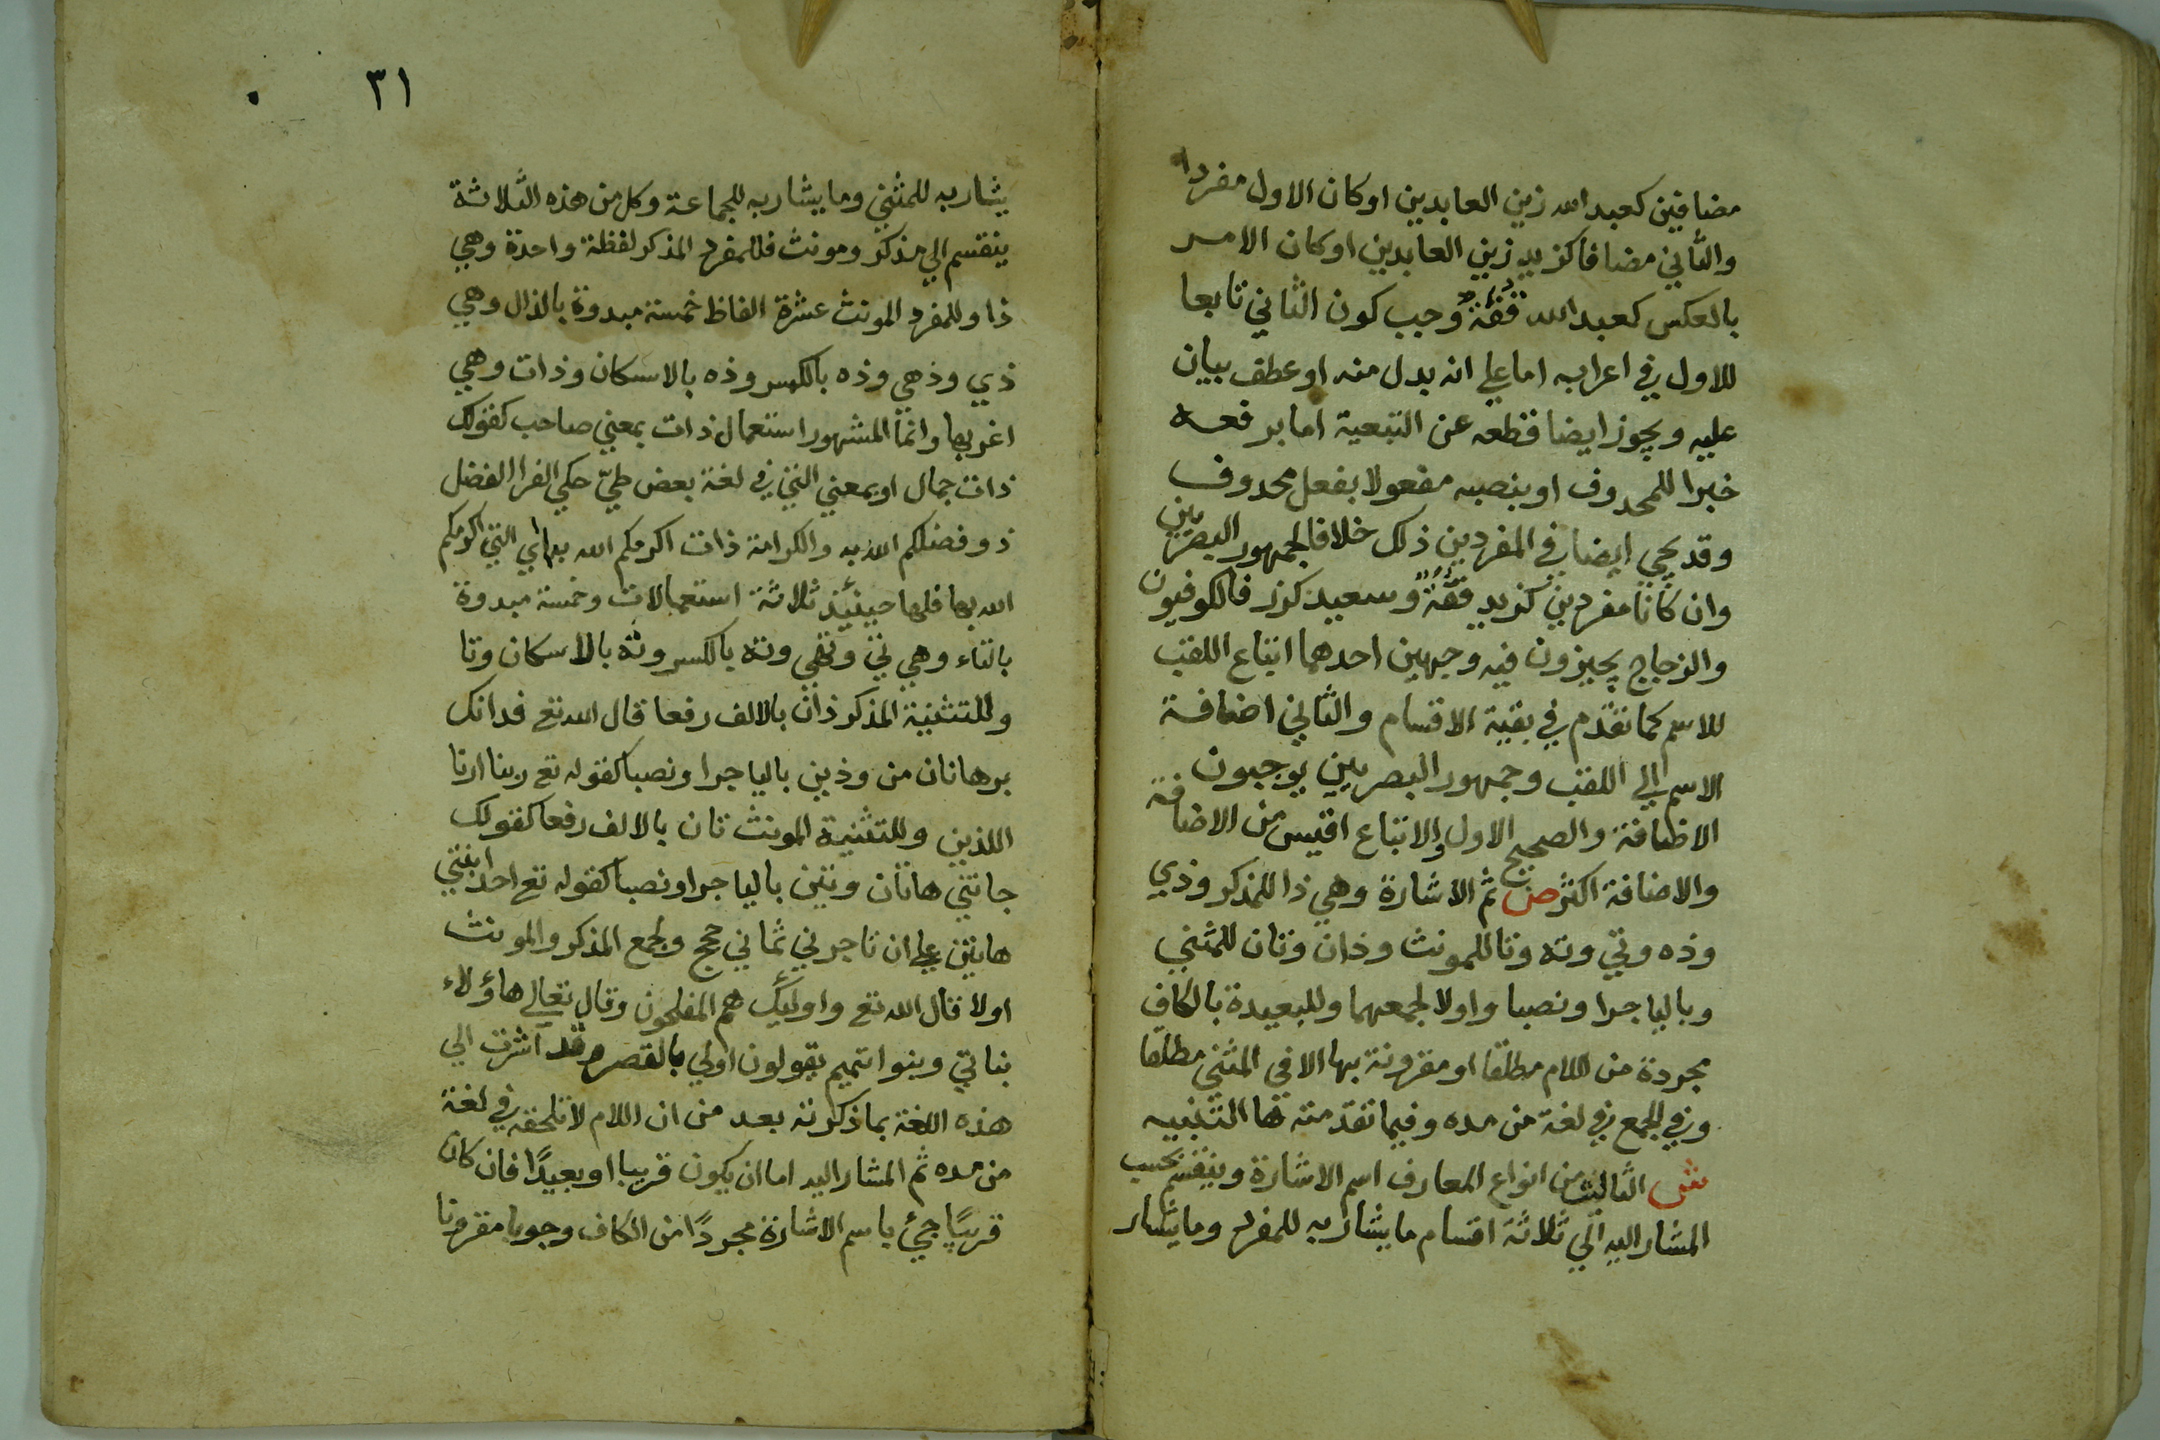 مضافين كعبد الله زين العابدين او كان الاول مفردا
والثاني مضافا كزيد زين العابدين او كان الامر
بالعكس كعبد الله قفة وجب كون الثاني تابعا
للاول في اعرابه اما علي انه بدل منه او عطف بيان
عليه ويجوز ايضا قطعه عن التبعية اما برفعه
خبرا للمحذوف او بنصبه مفعولا بفعل محذوف
وقد يجي ايضا في المفردين ذلك خلافا لجمهور البصريين
وان كانا مفردين كزيد قفة وسعيد كرز فالكوفيون
والزجاج يجيزون فيه وجهين احدهما اتباع اللقب
للاسم كما تقدم في بقية الاقسام والثاني اضافة
الاسم الي اللقب وجمهور البصريين يوجبون
الاضافة والصحيح الاول والاتباع اقيس من الاضافة
والاضافة اكثر ص ثم الاشارة وهي ذا للمذكر وذي
وذه وتي وته وتا للمونث وذان وتان للمثني
وباليا جرا ونصبا واولا لجمعهما وللبعيدة بالكاف
مجردة من اللام مطلقا او مقرونة بها الا في المثني مطلقا
وفي الجمع في لغة من مده وفيما تقدمته ها التنبيه
ش الثالث من انواع المعارف اسم الاشارة وينقسم بحسب
المشار اليه الي ثلاثة اقسام ما يشار به للمفرد وما يشار
٣١
يشار به للمثني وما يشار به للجماعة وكل من هذه الثلاثة
ينقسم الي مذكر ومونث فللمفرد المذكر لفظة واحدة وهي
ذا وللمفرد المونث عشرة الفاظ خمسة مبدوة بالذال وهي
ذي وذهي وذه بالكسر وذه بالاسكان وذات وهي
اغربها وانما المشهور استعمال ذات بمعني صاحب كقولك
ذات جمال او بمعني التي في لغة بعض طيّ حكي الفرا الفضل
ذو فضلكم الله به والكرامة ذات اكرمكم الله بها اي التي اكرمكم
الله بها فلها حينئذ ثلاثة استعمالات وخمسة مبدوة
بالتاء وهي تي وتهي وته بالكسر وته بالاسكان وتا
وللتثنية المذكر ذان بالالف رفعا قال الله تع فدانك
برهانان من وذين باليا جرا ونصبا كقوله تع ربنا ارنا
اللذين وللتثنية المونث تان بالالف رفعا كقولك
جاتني هاتان وتين باليا جرا ونصبا كقوله تع احد ابنتي
هاتين علي ان تاجرني ثماني حجج ولجمع المذكر والمونث
اولا قال الله تع واولئيك هم المفلحون وقال تعالي هاؤلاء
بناتي وبنوا تميم يقولون اولي بالقصر وقد اشرت الي
هذه اللغة بما ذكرته بعد من ان اللام لا تلحقه في لغة
من مده ثم المشار اليه اما ان يكون قريبا او بعيدًا فان كان
قريبًا جئ باسم الاشارة مجردًا من الكاف وجوبا مقرونا